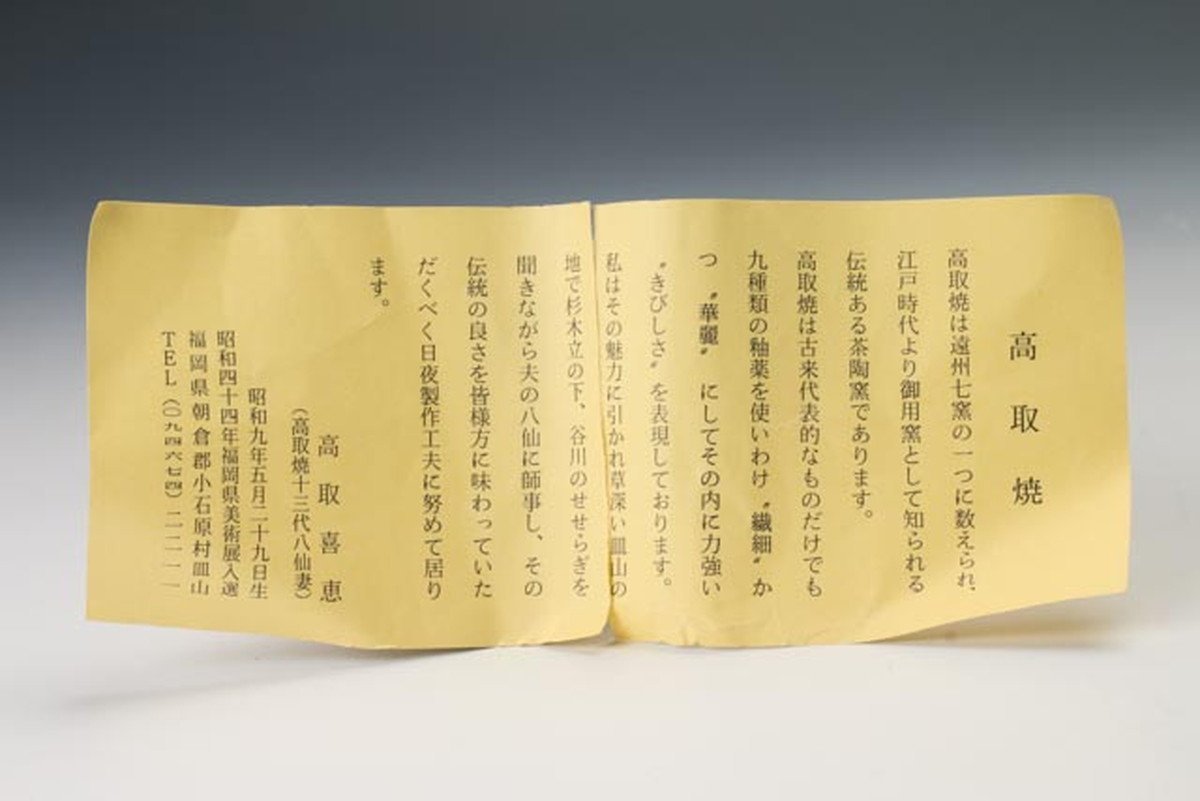 高取焼
高取焼は遠州七窯の一つに数えられ、
江戸時代より御用窯として知られる
伝統ある茶陶窯であります。
高取焼は古来代表的なものだけでも
九種類の釉薬を使いわけ〝繊細〟か
つ〝華麗〟にしてその内に力強い
〝きびしさ〟を表現しております。
私はその魅力に引かれ草深い皿山の
地で杉木立の下、谷川のせせらぎを
聞きながら夫の八仙に師事し、その
伝統の良さを皆様方に味わっていた
だくべく日夜製作工夫に努めて居り
ます。
高取喜恵
(高取焼十三代八仙妻)
昭和九年五月二十九日生
昭和四十四年福岡県美術展入選
福岡県朝倉郡小石原村皿山
TEL(〇九四六七四)